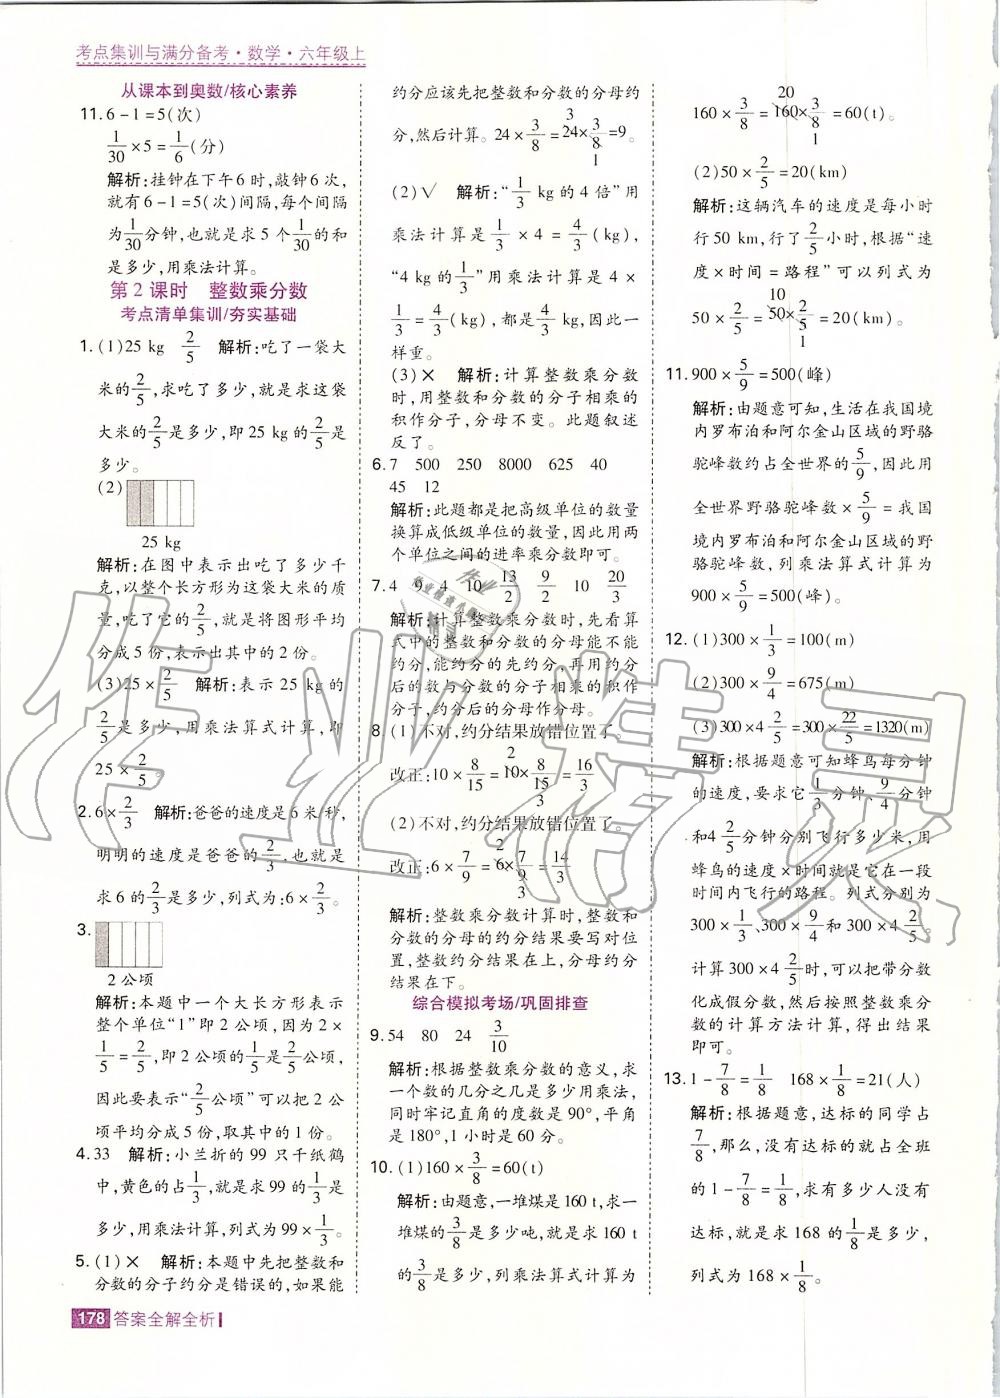 考点集训与满分备考·数学·六年级上
从课本到奥数/核心素养
11. 6-1=5(次)
1/30×5=1/6(分)
解析:挂钟在下午6时,敲钟6次,
就有6-1=5(次)间隔,每个间隔
为1/30分钟,也就是求5个1/30的和
是多少,用乘法计算。
第2课时 整数乘分数
考点清单集训/夯实基础
1. (1)25 kg 2/5 解析:吃了一袋大
米的2/5,求吃了多少,就是求这袋
大米的2/5是多少,即25 kg的2/5是
多少。
(2)
25 kg
解析:在图中表示出吃了多少千
克,以整个长方形为这袋大米的质
量,吃了它的2/5,就是将图形平均
分成5份,表示出其中的2份。
(3)25×2/5 解析:表示25 kg的
2/5是多少,用乘法算式计算,即
25×2/5。
2. 6×2/3 解析:爸爸的速度是6米/秒,
明明的速度是爸爸的2/3,也就是
求6的2/3是多少,列式为:6×2/3。
3.
2公顷
解析:本题中一个大长方形表示
整个单位“1”即2公顷,因为2×
1/5=2/5,即2公顷的1/5是2/5公顷,
因此要表示“2/5公顷”可以把2公
顷平均分成5份,取其中的1份。
4. 33 解析:小兰折的99只千纸鹤
中,黄色的占1/3,就是求99的1/3是
多少,用乘法计算,列式为99×1/3。
5. (1)× 解析:本题中先把整数和
分数的分子约分是错误的,如果能
约分应该先把整数和分数的分母约
分,然后计算。24×3/8=24(3)×3/8(1)=9。
(2)√ 解析:“1/3 kg的4倍”用
乘法计算是1/3×4=4/3(kg),
“4 kg的1/3”用乘法计算是4×
1/3=4/3(kg),都是4/3 kg,因此一
样重。
(3)× 解析:计算整数乘分数
时,用整数和分数的分子相乘的
积作分子,分母不变。此题叙述
反了。
6. 7 500 250 8000 625 40
45 12
解析:此题都是把高级单位的数量
换算成低级单位的数量,因此用两
个单位之间的进率乘分数即可。
7. 4 9 4 10 13/2 9/2 10 20/3
解析:计算整数乘分数时,先看算
式中的整数和分数的分母能不能
约分,能约分的先约分,再用约分
后的数与分数的分子相乘的积作
分子,约分后的分母作分母。
8. (1)不对,约分结果放错位置了。
改正:10×8/15=10(2)×8/15(3)=16/3
(2)不对,约分结果放错位置了。
改正:6×7/9=6(2)×7/9(3)=14/3
解析:整数乘分数计算时,整数和
分数的分母的约分结果要写对位
置,整数约分结果在上,分母约分
结果在下。
综合模拟考场/巩固排查
9. 54 80 24 3/10
解析:根据整数乘分数的意义,求
一个数的几分之几是多少用乘法,
同时牢记直角的度数是90°,平角
是180°,1小时是60分。
10. (1)160×3/8=60(t)
解析:由题意,一堆煤是160 t,求一
堆煤的3/8是多少吨,就是求160 t
的3/8是多少,列乘法算式计算为
160×3/8=160(20)×3/8(1)=60(t)。
(2)50×2/5=20(km)
解析:这辆汽车的速度是每小时
行50 km,行了2/5小时,根据“速
度×时间=路程”可以列式为
50×2/5=50(10)×2/5(1)=20(km)。
11. 900×5/9=500(峰)
解析:由题意可知,生活在我国境
内罗布泊和阿尔金山区域的野骆
驼峰数约占全世界的5/9,因此用
全世界野骆驼峰数×5/9=我国
境内罗布泊和阿尔金山区域的野骆
驼峰数,列乘法算式计算为
900×5/9=500(峰)。
12. (1)300×1/3=100(m)
(2)300×9/4=675(m)
(3)300×4 2/5=300×22/5=1320(m)
解析:根据题意可知蜂鸟每分钟
的速度,要求它1/3分钟、9/4分钟
和4 2/5分钟分别飞行多少米,用
蜂鸟的速度×时间就是它在一段
时间内飞行的路程。列式分别为
300×1/3、300×9/4和300×4 2/5。
计算300×4 2/5时,可以把带分数
化成假分数,然后按照整数乘分
数的计算方法计算,得出结果
即可。
13. 1-7/8=1/8 168×1/8=21(人)
解析:根据题意,达标的同学占
7/8,那么,没有达标的就占全班
的1-7/8=1/8,求有多少人没有
达标,就是求168的1/8是多少,
列式为168×1/8。
178 答案全解全析
作业精灵